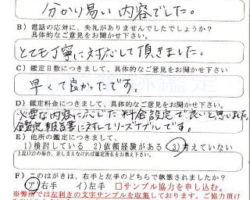 分かり易い内容でした。
B）電話の応対に、失礼がありませんでしたでしょうか？
具体的なご意見をお聞かせ下さい
とても丁寧に対応して頂きました。
C）鑑定日数につきまして、具体的なご意見をお聞かせ下さい
早くて良かったです。
D）鑑定料金につきまして、具体的なご意見をお聞かせ下さい
必要な内容に応じた料金設定で良いと思いました
鑑定報告書に対してリーズナブルです。
E）他所の鑑定につきまして、
1）検討している 2）依頼経験がある 3）考えていない
F）このはがきは、右手と左手のどちらで執筆されましたか？
ア）右手 イ）左手 □サンプル協力を申し込む。
※弊所では左利きの文字サンプルを収集しております。ご協力